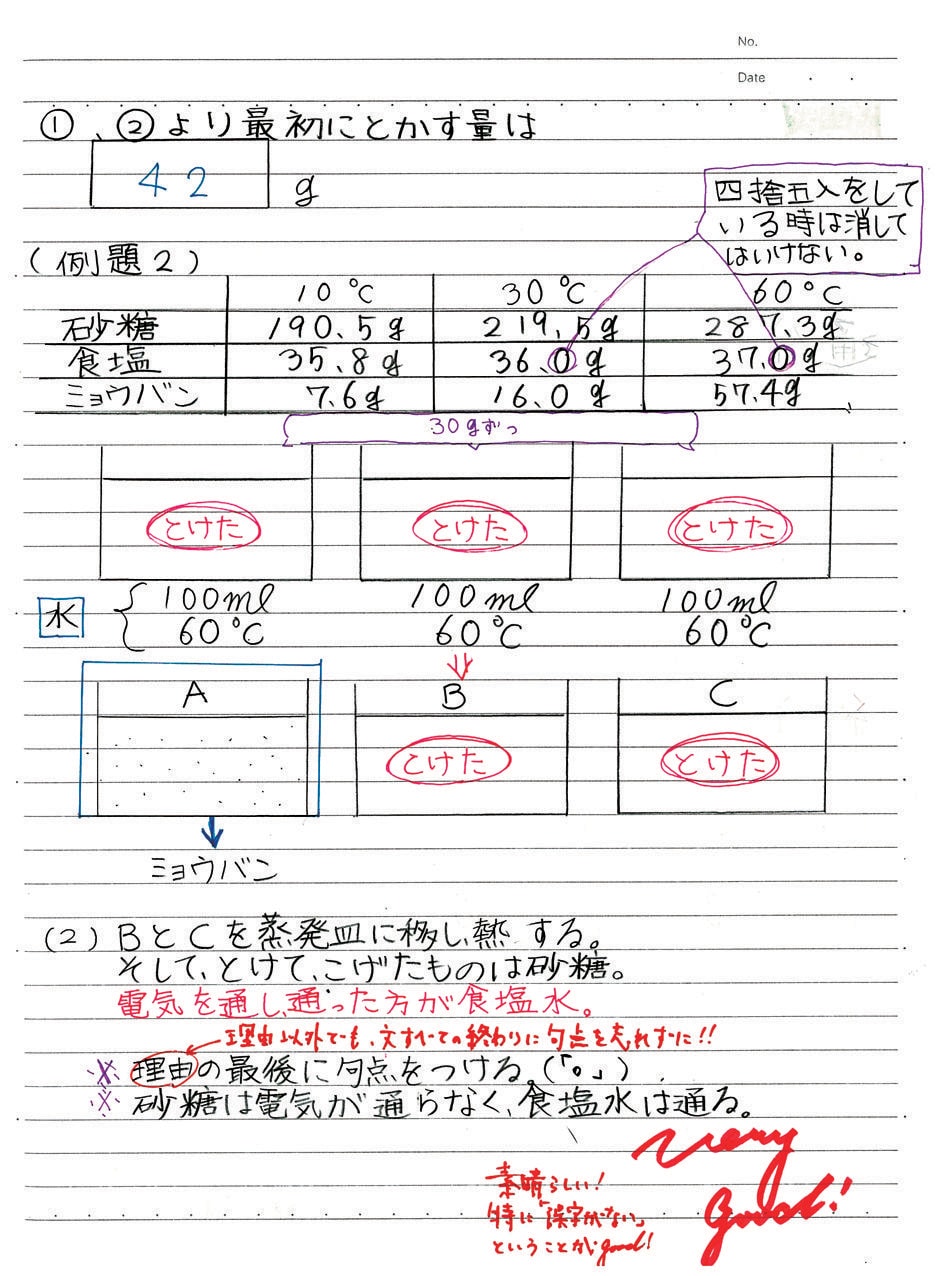 No.
Date
①、②より最初にとかす量は
42 g
四捨五入をして
いる時は消して
はいけない。
(例題2)
10℃ 30℃ 60℃
砂糖 190.5g 219.5g 287.3g
食塩 35.8g 36.0g 37.0g
ミョウバン 7.6g 16.0g 57.4g
30gずつ
とけた とけた とけた
水 100ml 100ml 100ml
60℃ 60℃ 60℃
A B C
とけた とけた
ミョウバン
(2) BとCを蒸発皿に移し、熱する。
そして、とけて、こげたものは砂糖。
電気を通し、通った方が食塩水。
理由以外でも、文すべての終わりに句点を忘れずに!!
※理由の最後に句点をつける。(「。」)
※砂糖は電気が通らなく、食塩水は通る。
Very
good!
素晴らしい!
特に「誤字がない」
ということがgood!